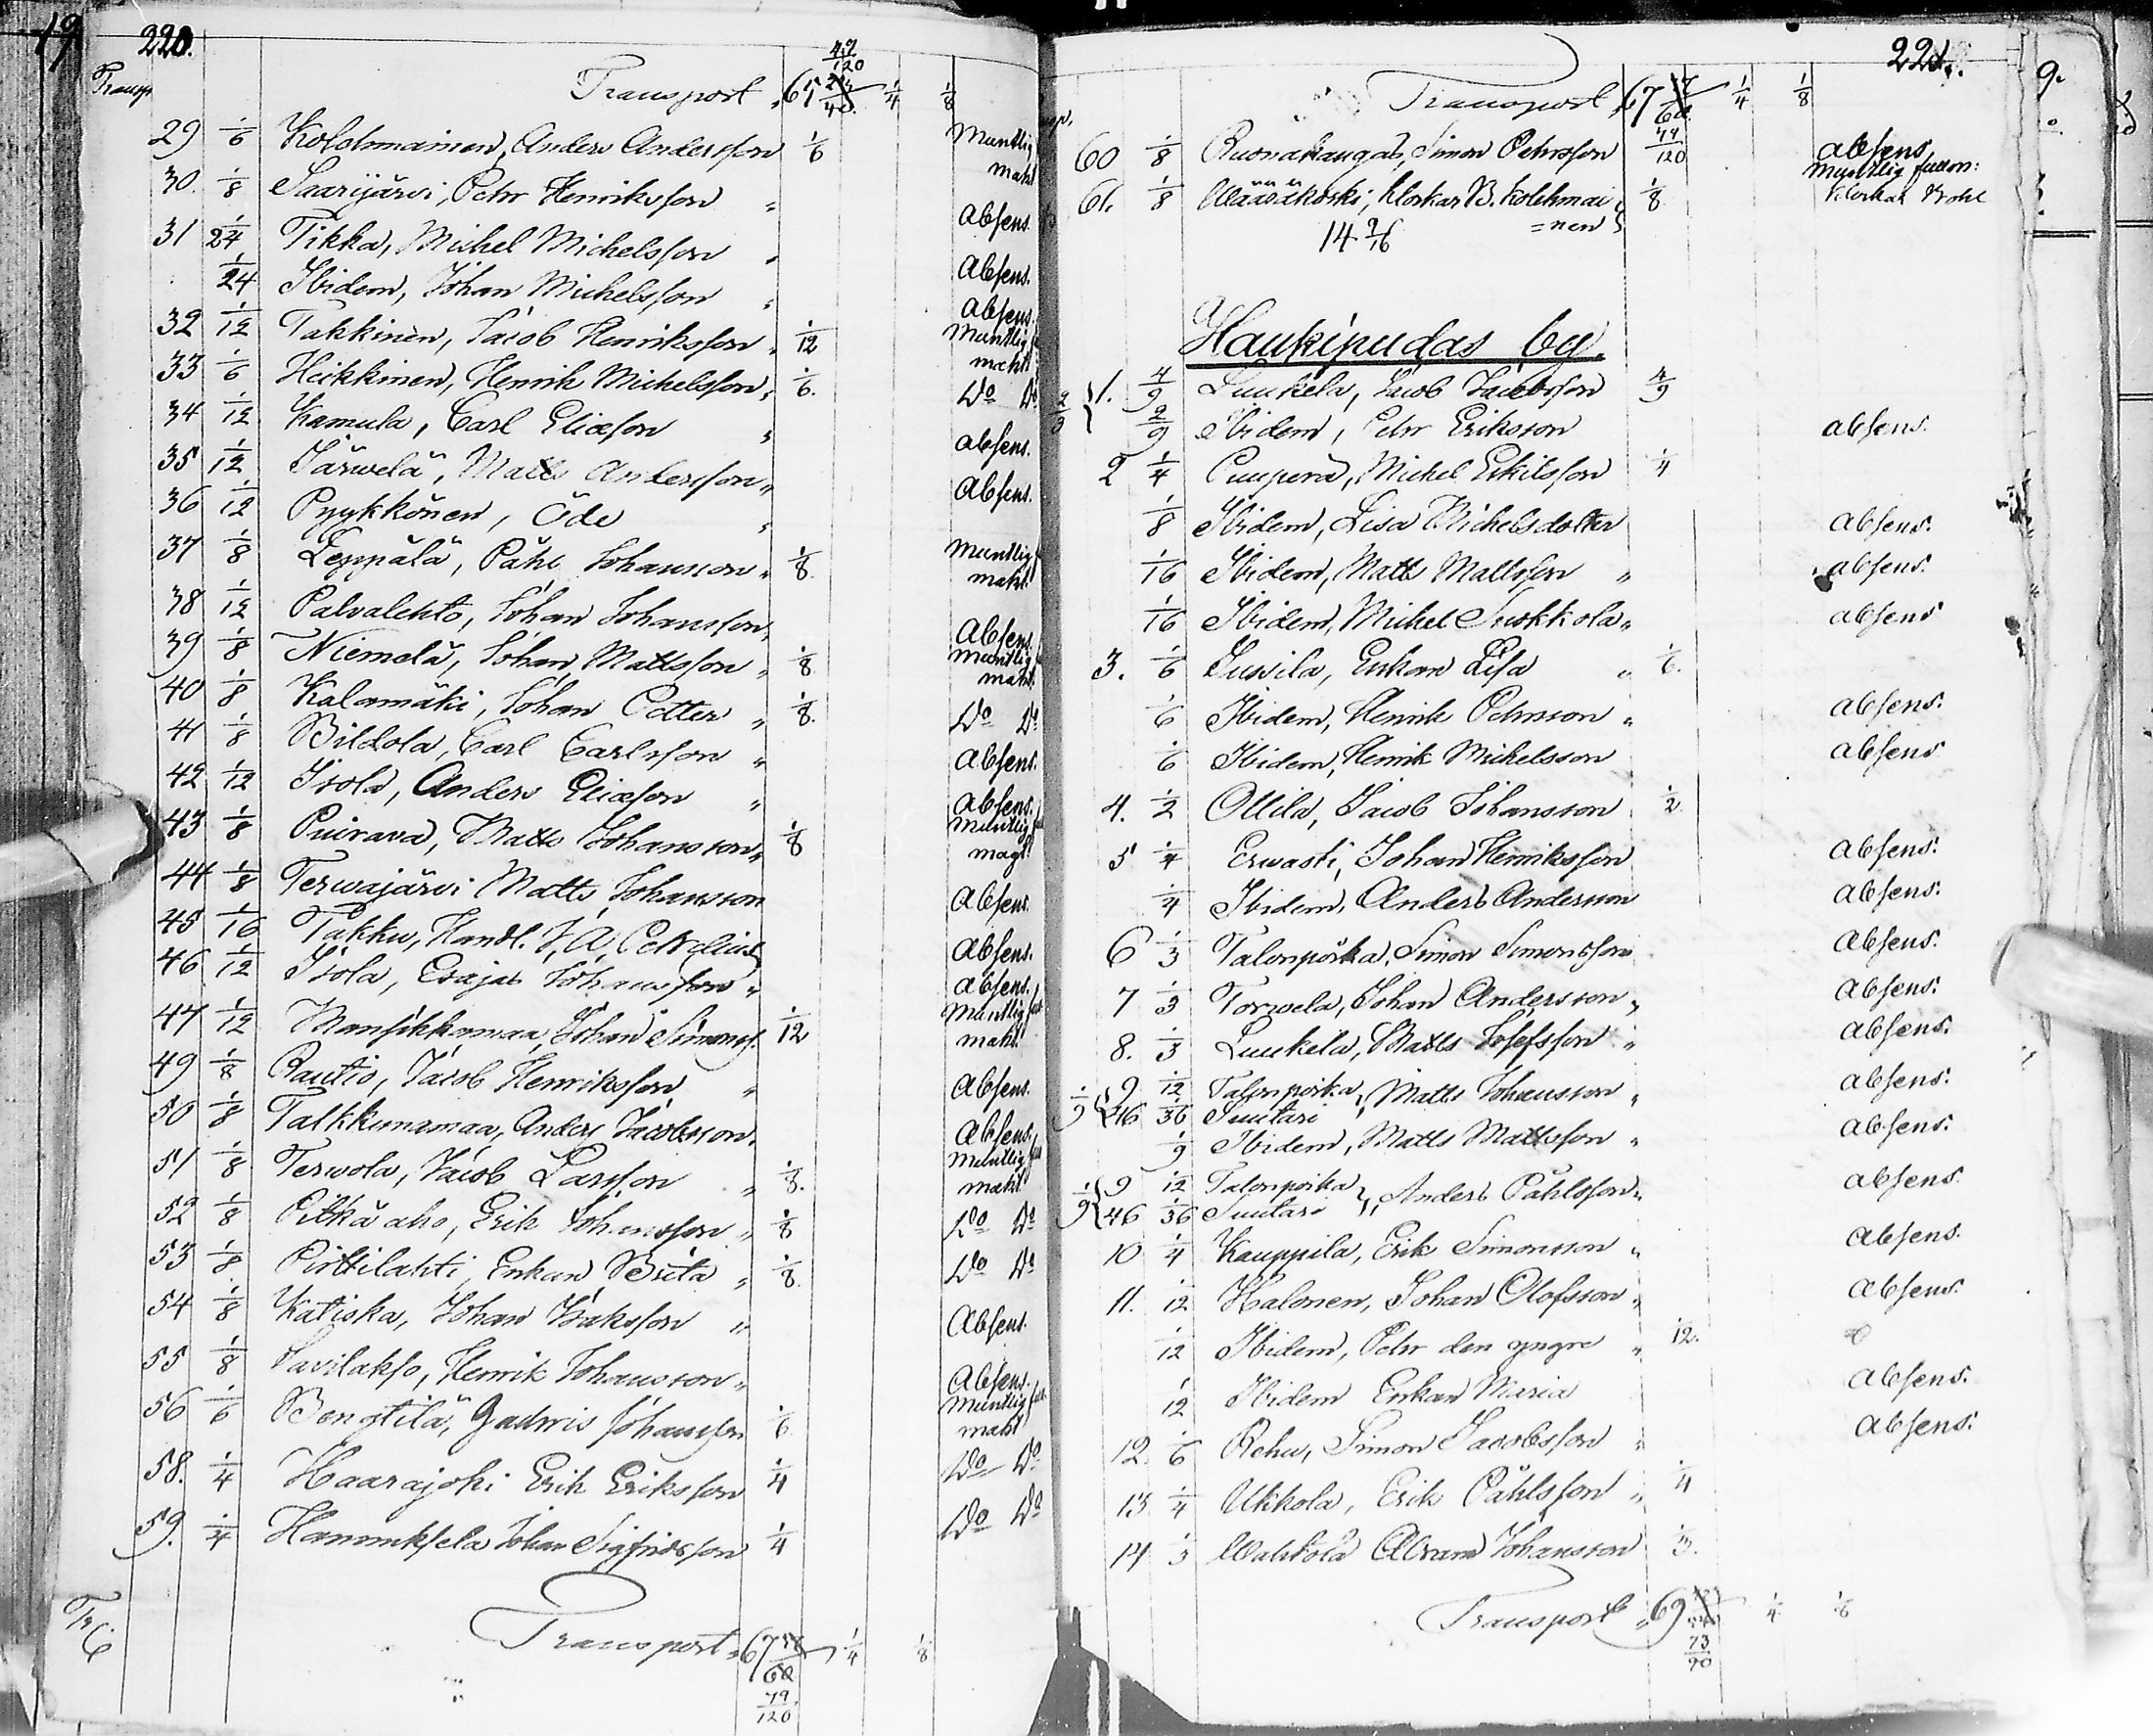 220.
Transport 65 1/4 1/8
49/120
29 1/6 Kolehmainen, Anders Andersson 1/6 Muntlig makt
30. 1/8 Saarijärvi, Petr Henriksson " Absens.
31 1/24 Tikka, Michel Michelsson " Absens.
1/24 Ibidem, Johan Michelsson " Absens.
32 1/12 Takkinen, Jacob Henriksson " 1/12 Muntlig makt
33 1/6 Heikkinen, Henrik Michelsson " 1/6. Do Do
34 1/12 Kamula, Carl Eliasson " absens.
35 1/12 Järwelä, Matts Andersson " Absens.
36 1/12 Pyykkönen, Öde "
37 1/8 Leppälä, Påhl Johansson " 1/8. Muntlig makt
38 1/12 Palvalehto, Johan Johansson " Absens
39 1/8 Niemelä, Johan Mattsson " 1/8 Muntlig makt
40 1/8 Kalamäki, Johan Petter " 1/8. Do Do
41 1/8 Bildola, Carl Carlsson " Absens.
42 1/12 Isola, Anders Eliasson " Absens.
43 1/8 Puirava, Matts Johansson " 1/8 Muntlig magt
44 1/8 Terwajärvi Matts Johansson Absens.
45 1/16 Takku, Handl. J. A. Petrelius Absens.
46 1/12 Isola, Esajas Johansson " absens.
47 1/12 Mansikkamaa, Johan Simonss. 1/12 Muntlig makt
49 1/8 Rautio, Jacob Henriksson " Absens.
50 1/8 Talkkunamaa, Anders Jacobsson " Absens.
51 1/8 Terwola, Jacob Larsson " 1/8. Muntlig makt
52 1/8 Pitkä aho, Erik Johansson " 1/8 Do Do
53 1/8 Pirttilahti, Enkan Brita " 1/8. Do Do
54 1/8 Katiska, Johan Isaksson " Absens.
55 1/8 Savilakso, Henrik Johansson " Absens.
56 1/6 Bengtilä, Johansson 1/6 Muntlig makt
58. 1/4 Haarajohi Erik Eriksson 1/4 Do Do
59. 1/4 Hannuksela Johan Sigfridsson 1/4 Do Do
Transport " 67 1/4 1/8
79/120
221.
Transport 67 1/4 1/8
79/120
60 1/8 Ruonakangas, Simon Pehrsson absens
61. 1/8 Wääräkoski, Klockar B. Kolehmai 1/8 Muntlig fullm: Klockar
=nen
14 9/16
Haukipudas by.
1. 4/9 Luukela, Jacob Jacobsson 4/9
2/9 Ibidem, Petr Eriksson absens.
2 1/4 Puuperä, Michel Erkilsson 1/4
1/8 Ibidem, Lisa Michelsdotter absens.
1/16 Ibidem, Matts Mattsson " absens.
1/16 Ibidem, Michel Suokkola " absens
3. 1/6 Jussila, Enkan Lisa " 1/6.
1/6 Ibidem, Henrik Pehrsson " absens.
1/6 Ibidem, Henrik Michelsson absens
4. 1/2 Ollila, Jacob Johansson 1/2
5 1/4 Erwasti, Johan Henriksson absens.
1/4 Ibidem, Anders Andersson absens.
6 1/3 Talonpoika, Simon Simonsson absens.
7 1/3 Torwela, Johan Andersson " absens.
8. 1/3 Luukela, Matts Josefsson " absens.
1/9 { 9 1/12 Talonpoika, Matts Johansson " absens.
46 1/36 Suutari
1/9 Ibidem, Matts Mattsson " absens.
1/9 { 9 1/12 Talonpoika }, Anders Påhlsson " absens.
46 1/36 Suutari
10 1/4 Kauppila, Erik Simonsson " absens.
11. 1/12 Halonen, Johan Olofsson " absens.
1/12 Ibidem, Petr den yngre " 1/12.
1/12 Ibidem Enkan Maria absens.
12. 1/6 Rehu, Simon Jacobsson " absens.
13 1/4 Ukkola, Erik Påhlsson " 1/4
14 1/3 Wahtola Abram Johansson 1/3.
Transport " 69 1/4 1/8
73/90